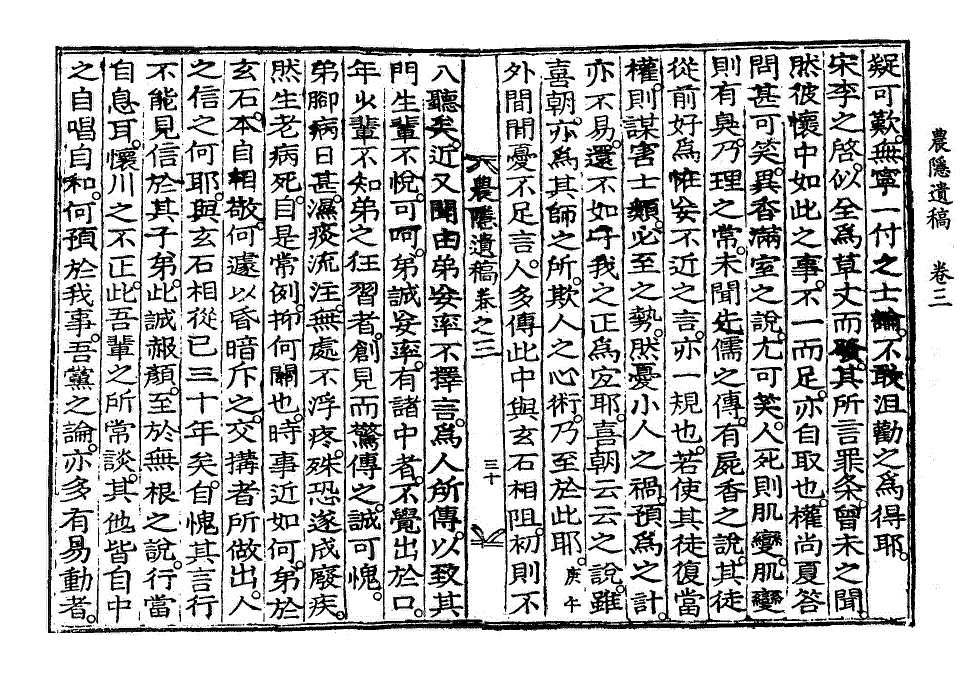 農隱遺稿 卷三
疑可歎。無寧一付之士論。不敢沮勸之爲得耶。
宋李之啓。似全爲草丈而發。其所言罪条。曾未之聞。
然彼懷中如此之事。不一而足。亦自取也。權尚夏答
問甚可笑。異香滿室之說。尤可笑。人死則肌變。肌變
則有臭。乃理之常。未聞先儒之傳。有屍香之說。其徒
從前好爲惟妄不近之言。亦一規也。若使其徒復當
權。則謀害士類。必至之勢。然憂小人之禍。預爲之計。
亦不易。還不如守我之正爲宜耶。喜朝云云之說。雖
喜朝。亦爲其師之所。欺人之心術。乃至於此耶。庚午
外間閙憂不足言。人多傳此中與玄石相阻。初則不
農隱遺稿卷之三 三十
入聽矣。近又聞由弟妄率不擇言。爲人所傳。以致其
門生輩不悅。可呵。弟誠妄率。有諸中者。不覺出於口。
年少輩不知弟之狂習者。創見而驚傳之。誠可愧。
弟脚病日甚。濕痰流注。無處不浮疼。殊恐遂成廢疾。
然生老病死。自是常例。抑何關也。時事近如何。弟於
玄石。本自相敬。何遽以昏暗斥之。交搆者所做出。人
之信之何耶。與玄石相從已三十年矣。自愧其言行
不能見信於其子弟。此誠赧顏。至於無根之說。行當
自息耳。懷川之不正。此吾輩之所常談。其他皆自中
之自唱自和。何預於我事。吾黨之論。亦多有易動者。